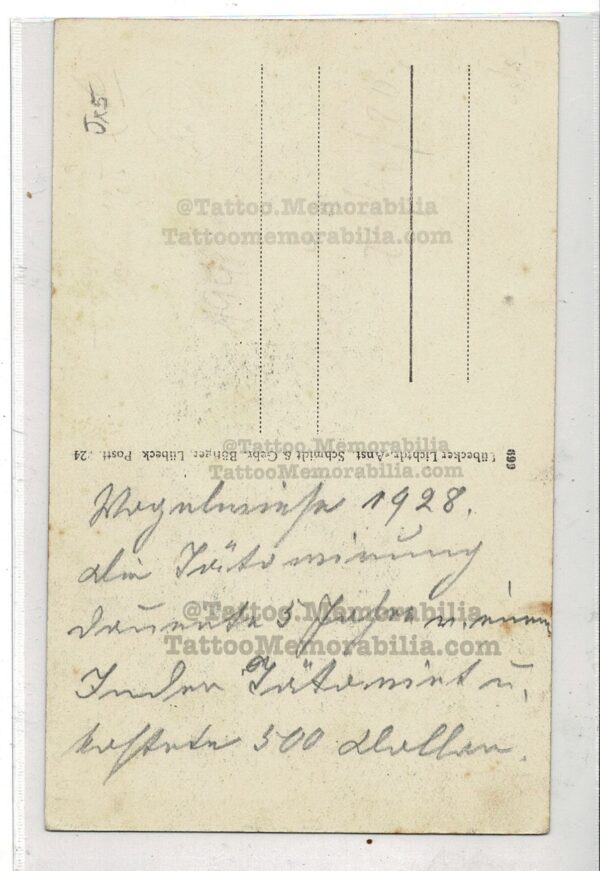 Jx5
@Tattoo.Memorabilia
Tattoomemorabilia.com
699 Lübecker Lichtdr.-Anst. Schmidt & Gebr. Böttger Lübeck Postf. 24
@Tattoo.Memorabilia
TattooMemorabilia.com
Vogelwiese 1928.
die Tätowierung
dauerte 5 Jahre v. einem
@Tattoo.Memorabilia
TattooMemorabilia.com
Inder Tätowiert u.
kostete 500 Dollar.